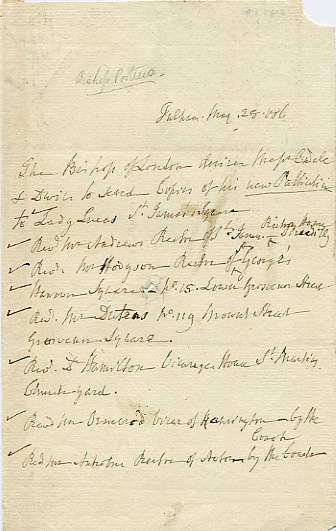 Bishop Porteus
Fulham. May 28. 1806
The Bishop of London desires Messrs Cadell
& Davies to send Copies of his new Publication
to Lady Lucas St James's Square
Revd Mr Andrews Rector of St James. Piccadilly
Rectory House
Revd. Mr Hodgson Rector of St George's
Hanover Square. No. 15. Lower Grosvenor Street
Revd. Mr Dutens No. 119 Mount Street
Grosvenor Square.
Revd. Dr Hamilton Vicarage House St Martins
Church yard.
Revd Mr Ormerod Vicar of Kensington by the
Coach
Revd Mr Antrobus Rector of Acton by the Coach